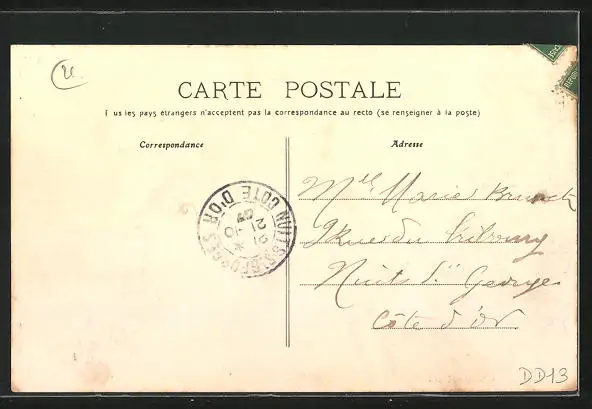 CARTE POSTALE
T us les pays étrangers n'acceptent pas la correspondance au recto (se renseigner à la poste)
Correspondance
Adresse
NUITS-S-GEORGES
COTE D'OR
Mlle Marie
Rue du
Nuits St Georges
Côte d'Or
DD13